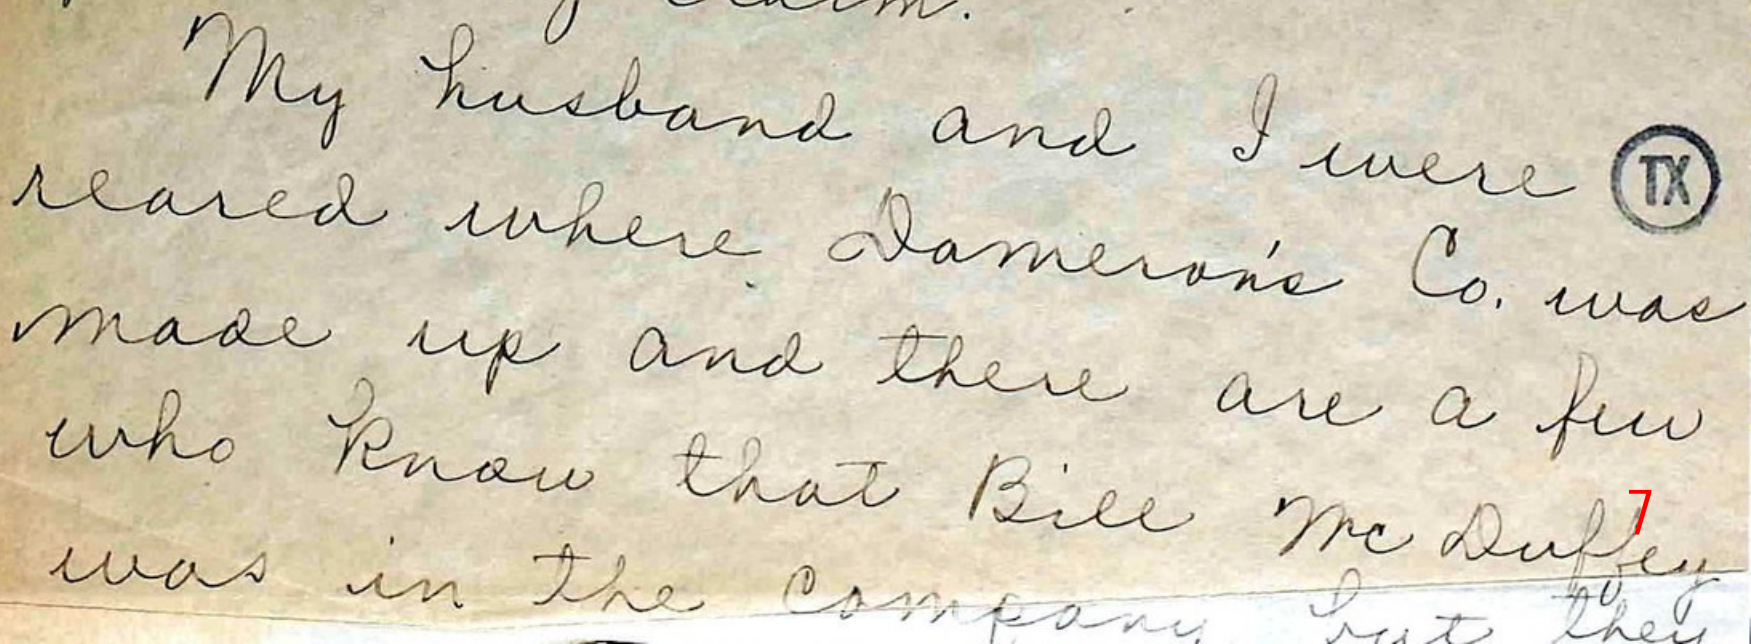 claim.
My husband and I were TX
reared where Dameron's Co. was
made up and there are a few
who know that Bill McDuffey
7
was in the company but they